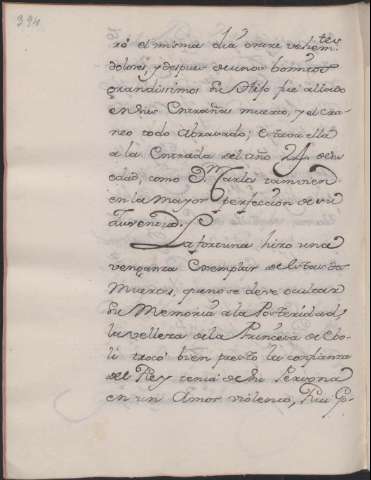 394
ró el mismo dia entre vehem.tes
dolores, y despues de unos bomitos
grandissimos su Hijo fue allado
en sus Entrañas muerto, y el cra-
neo todo abrasado; Estava ella
a la Entrada del año 24 de su
edad, como D.n Carlos tambien
en la mayor perfeccion de su
Juventud.
La fortuna hizo una
venganza Exemplar de
Muertes, que no se deve ocultar
su Memoria a la Posteridad,
la velleza de la Princesa de Ebo-
li trocó bien presto la confianza
del Rey tenia de su Persona
en un Amor violento, Rui Go-